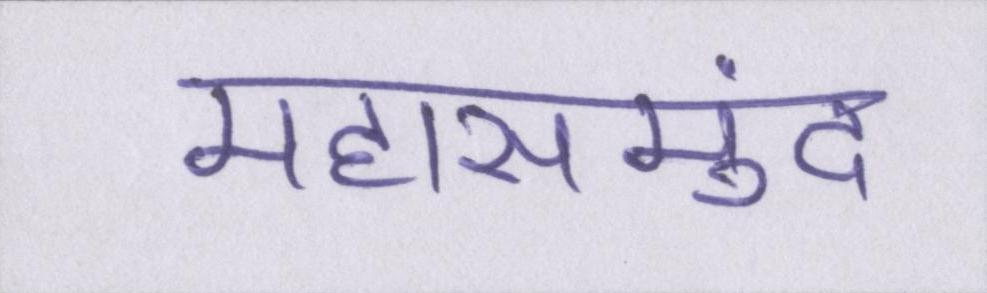 महासमुंद